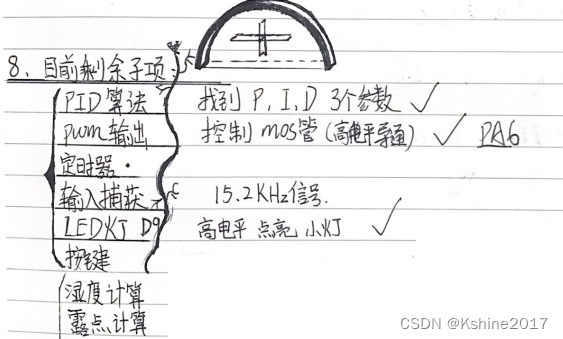 8、目前剩余子项:
PID 算法 找到 P, I, D 3个参数 ✓
pwm 输出 控制 mos管 (高电平导通) ✓ PA6
定时器.
输入捕获 15.2KHz信号.
LED灯 D9 高电平 点亮 小灯 ✓
按键
湿度计算
露点计算
CSDN @Kshine2017